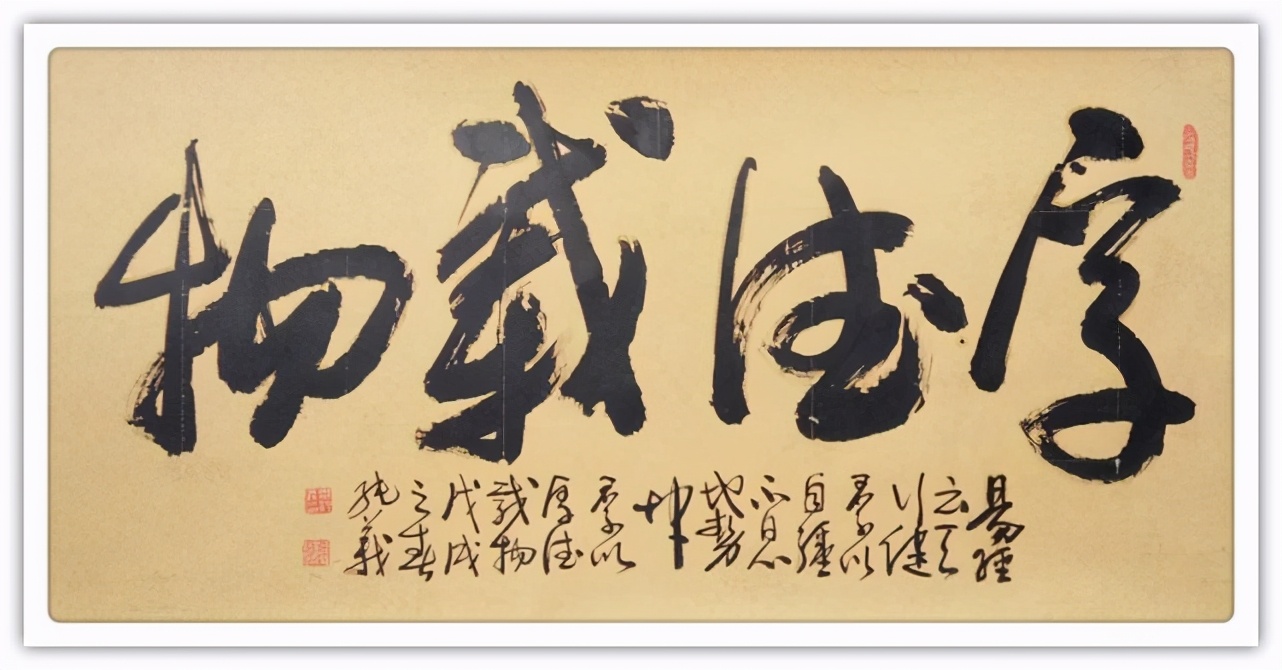 厚德載物
易經
云天
行健
君子以
自強
不息
地勢
坤
君子以
厚德
載物
戊戌
之春